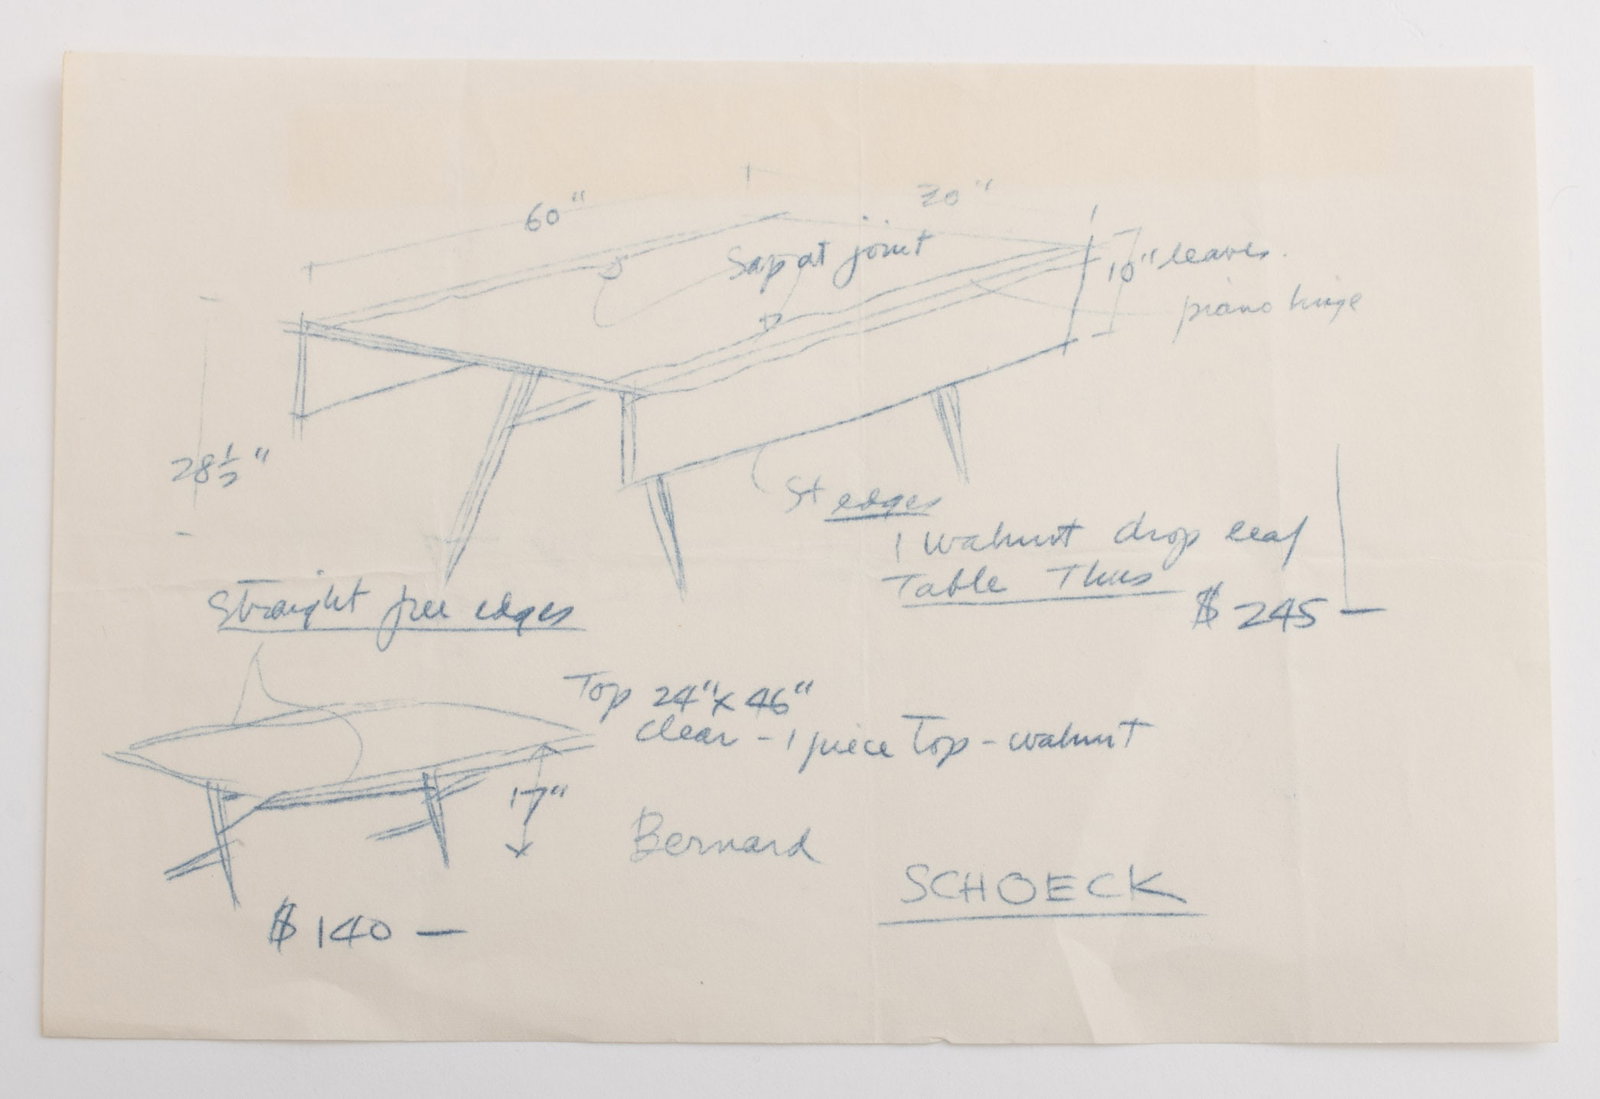 60"
Sap at joint
10" leaves.
piano hinge
28½"
St edges
1 walnut drop leaf
Table Thus
$ 245 —
Straight free edges
Top 24" x 46"
clear - 1 piece Top - walnut
17"
Bernard
SCHOECK
$ 140 —